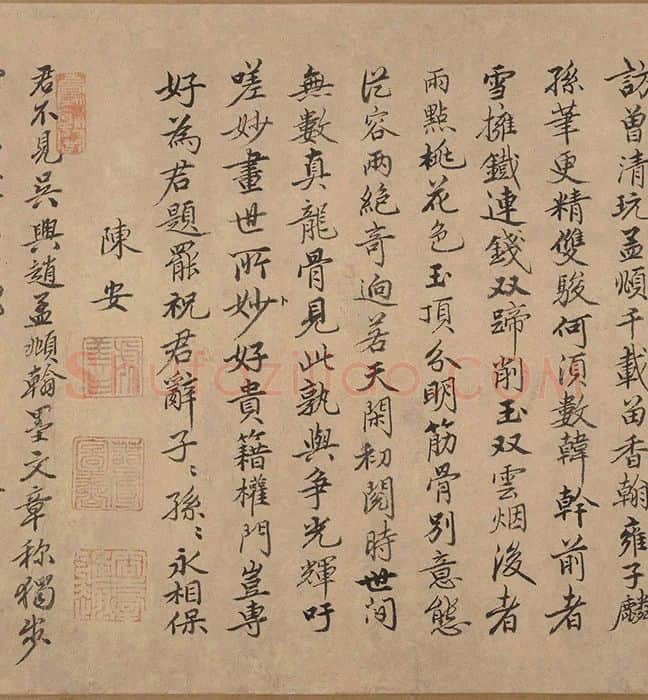 訪曾清玩孟頫千載留香翰雍子麟
孫筆更精雙駿何須數韓幹前者
雪擁鐵連錢双蹄削玉双雲烟後者
兩點桃花色玉頂分明筋骨別意態
從容兩絕奇逈若天閑初閱時世間
無數真龍骨見此孰與爭光輝吁
嗟妙畫世所妙卜好貴籍權門豈專
好為君題罷祝君辭子〻孫〻永相保
陳安
君不見吳興趙孟頫翰墨文章称獨步
Shufaziliao.COM